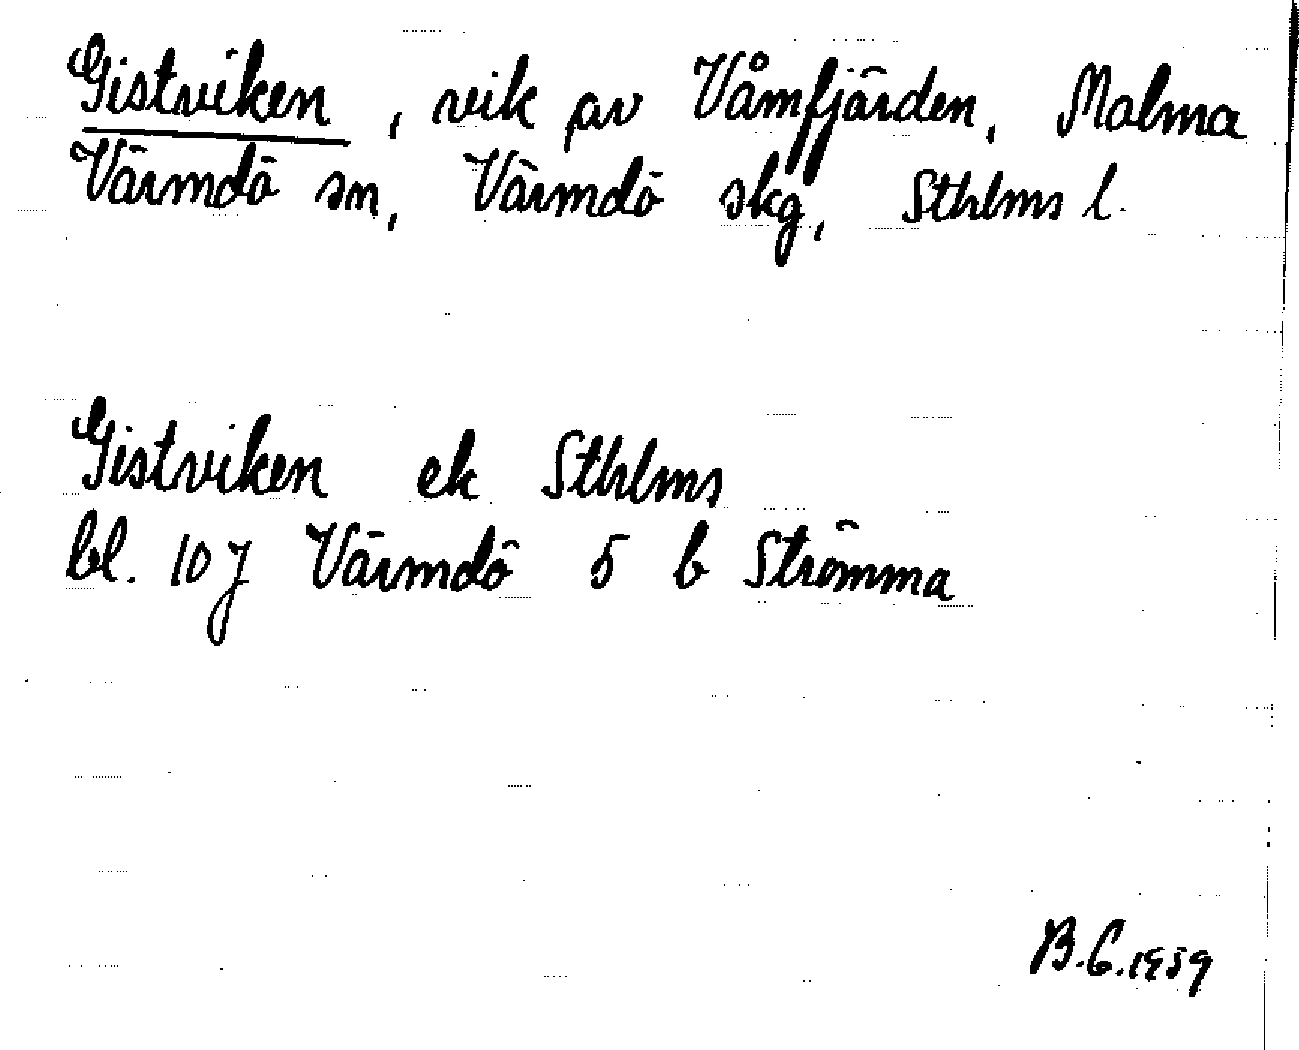 Gistviken, vik av Våmfjärden, Malma
Värmdö sn, Värmdö skg, Sthlms l.
Gistviken ek Sthlms
bl. 10 J Värmdö 5 b Strömma
B.C. 1959